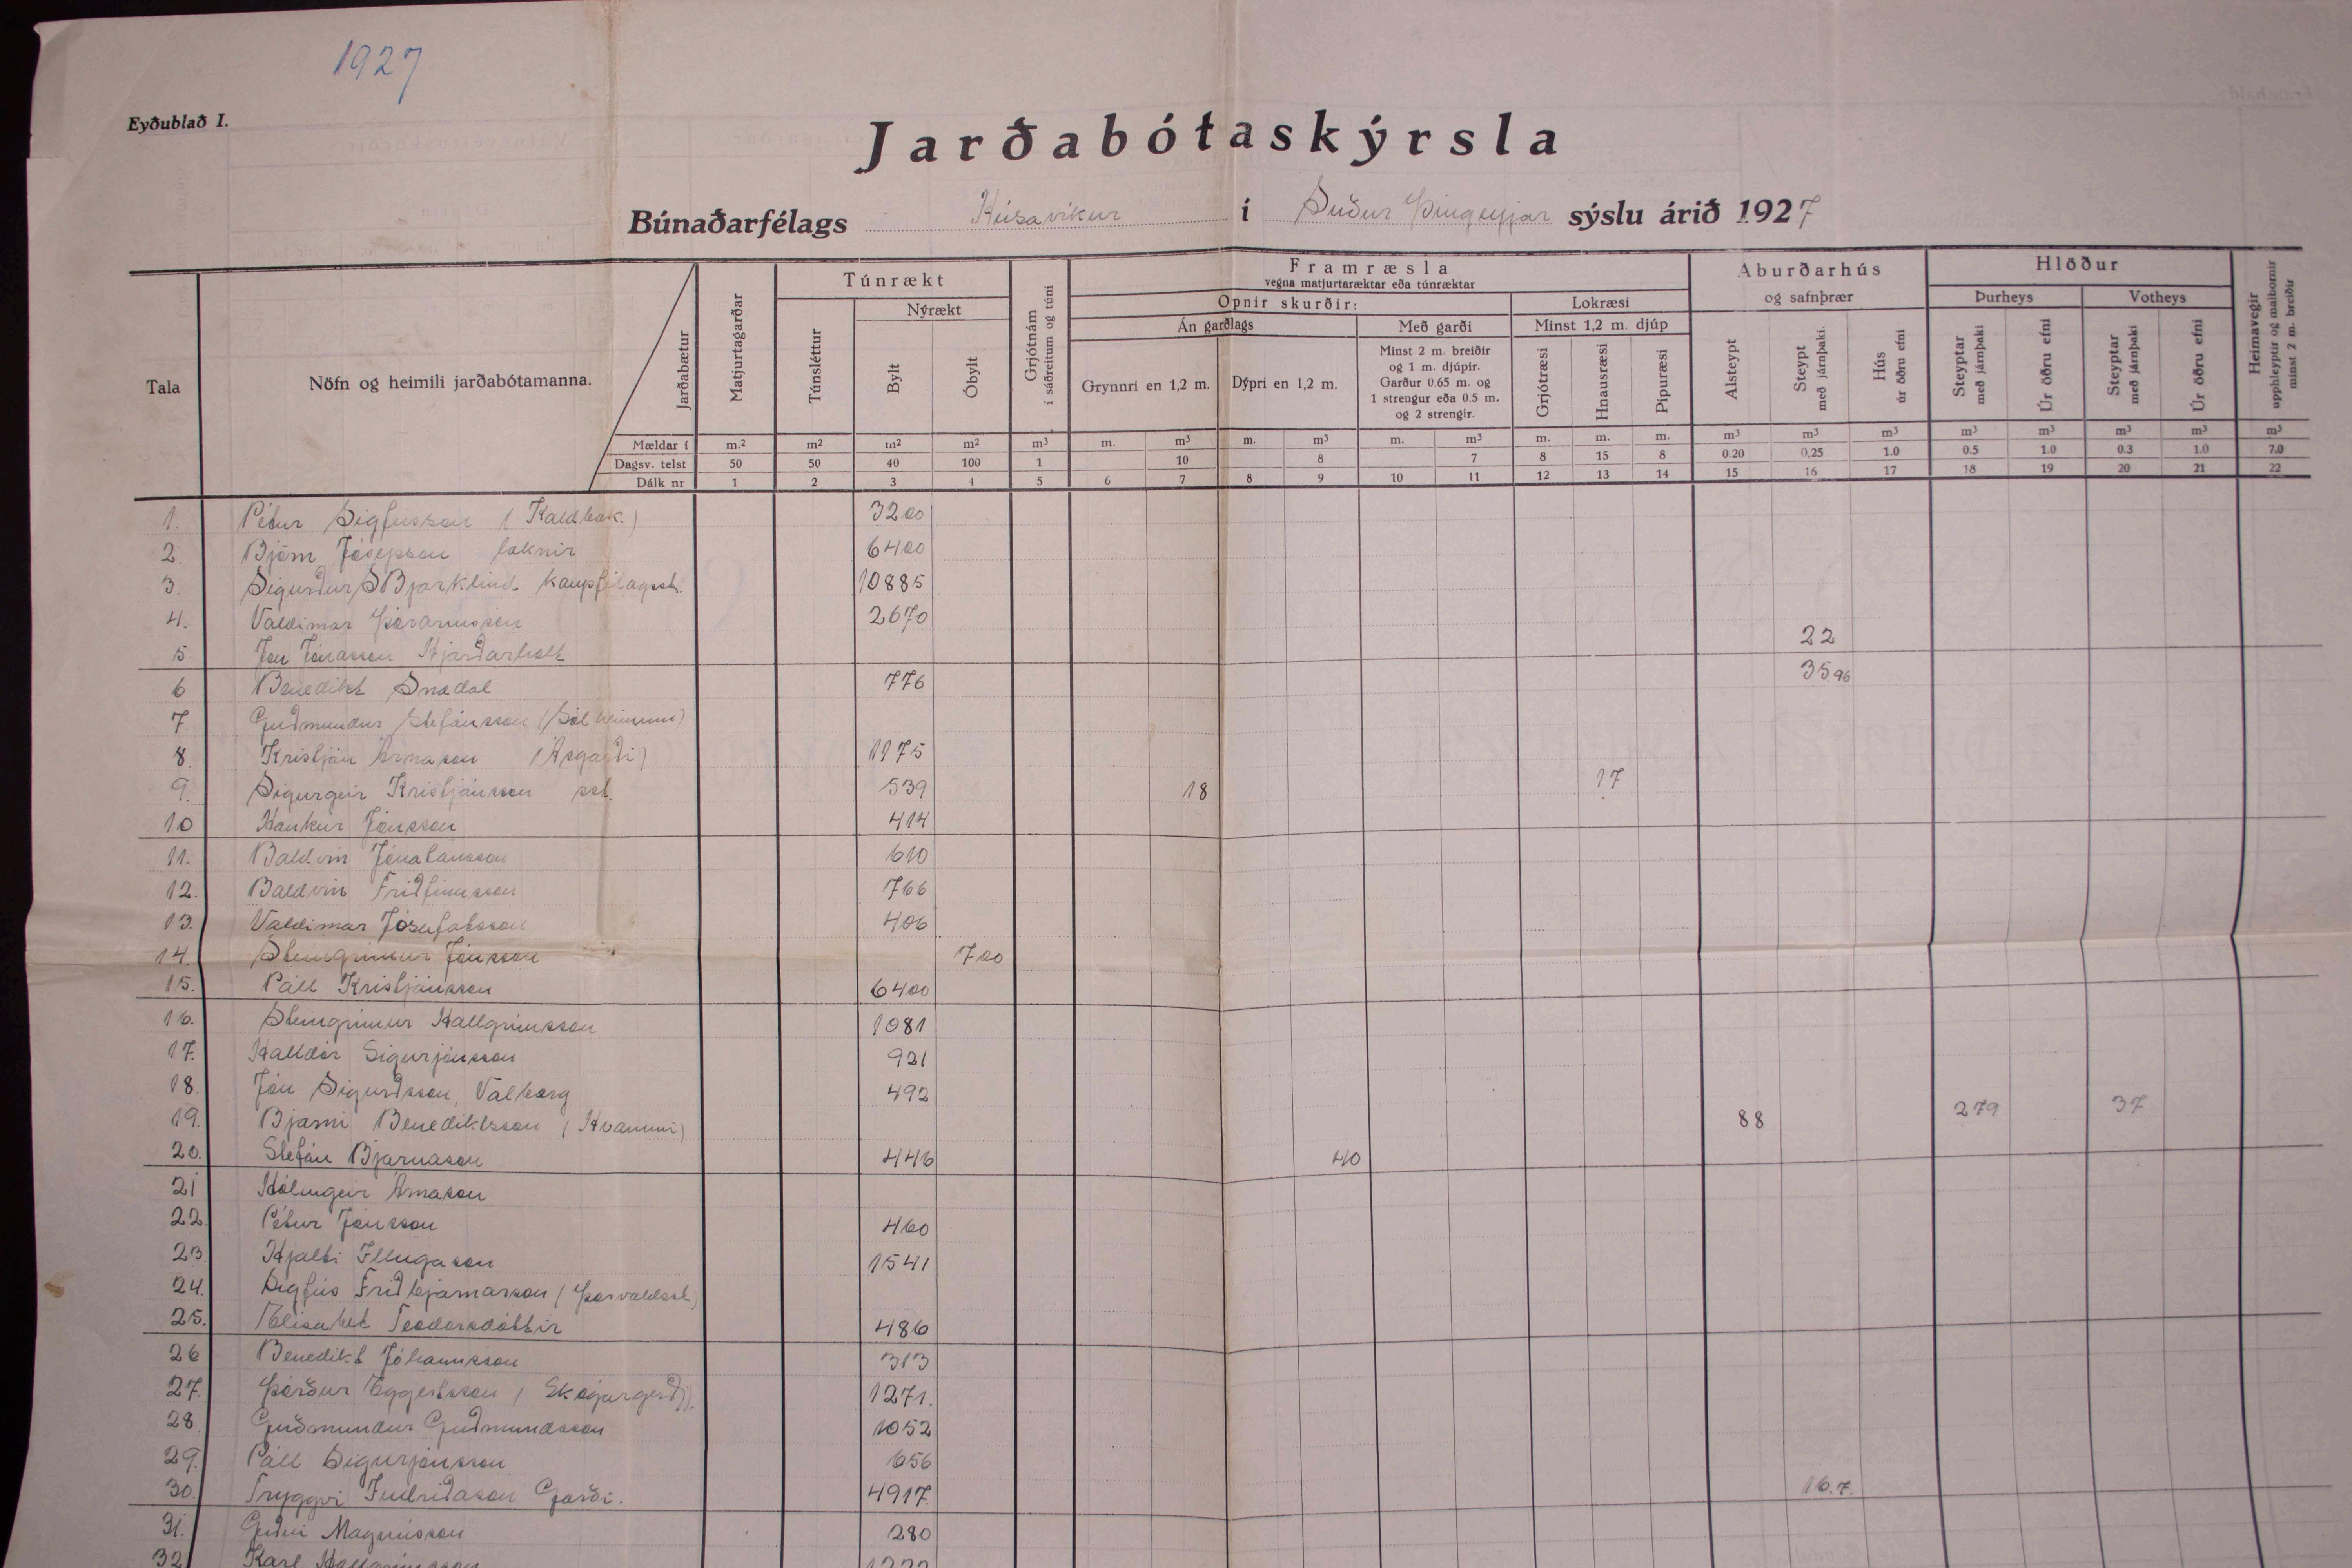 1927
Eyðublað I.
Jarðabótaskýrsla
Búnaðarfélags Húsavíkur í Suður Þingeyjar sýslu árið 1927
Tala
Nöfn og heimili jarðabótamanna.
Jarðabætur
Mældar í
Dagsv. telst
Dálk nr
Matjurtagarðar m.² 50 1
Túnrækt
Túnsléttur m² 50 2
Nýrækt
Bylt m² 40 3
Óbylt m² 100 4
Grjótnám í sáðreitum og túni m³ 1 5
Framræsla
vegna matjurtaræktar eða túnræktar
Opnir skurðir:
Án garðlags
Grynnri en 1,2 m. m. m³ 10 6 7
Dýpri en 1,2 m. m. m³ 8 8 9
Með garði
Minst 2 m. breiðir
og 1 m. djúpir.
Garður 0.65 m. og
1 strengur eða 0.5 m.
og 2 strengir.
m. m³ 7 10 11
Lokræsi
Minst 1,2 m. djúp
Grjótræsi m. 8 12
Hnausræsi m. 15 13
Pípuræsi m. 8 14
Aburðarhús
og safnþrær
Alsteypt m³ 0.20 15
Steypt með járnþaki. m³ 0,25 16
Hús úr öðru efni m³ 1.0 17
Hlöður
Þurheys
Steyptar með járnþaki m³ 0.5 18
Úr öðru efni m³ 1.0 19
Votheys
Steyptar með járnþaki m³ 0.3 20
Úr öðru efni m³ 1.0 21
Heimavegir
upphleyptir og malbornir
minst 2 m. breiðir
m³ 7.0 22
1. Pétur Sigfússon (Kaldbak.) 3200
2. Björn Jósepsson læknir 6400
3. Sigurður S Bjarklind kaupfélagsst. 10885
4. Valdimar Þórarinsson 2670
5. Jón Jónasson Hjarðarholt 22
6 Benedikt Snædal 776 35.96
7. Guðmundur Stefánsson (Sólheimum)
8. Kristján Árnason (Ásgarði) 1175
9. Sigurgeir Kristjánsson 539 18 17
10 Haukur Jónsson 414
11. Baldvin Jónatansson 610
12. Baldvin Friðfinnsson 766
13. Valdimar Jósefatsson 406
14. Steingrímur Jónsson 700
15. Páll Kristjánsson 6400
16. Steingrímur Hallgrímsson 1081
17. Halldór Sigurjónsson 921
18. Jón Sigurðsson, Valborg 492
19. Bjarni Benediktsson (Hvammi) 88 279 37
20. Stefán Bjarnason 446 40
21 Hólmgeir Árnason
22. Pétur Jónsson 460
23 Hjalti Illugason 1541
24. Sigfús Friðbjarnarson (Þorvaldsst.)
25. Elísabet Teodorsdóttir 486
26 Benedikt Jóhannsson 313
27. Þórður Eggertsson (Skógargerði). 1271.
28 Guðmundur Guðmundsson 1052
29. Páll Sigurjónsson 656
30. Tryggvi Indriðason Garði. 4917. 16.7.
31. Guðni Magnússon 280
32 Karl